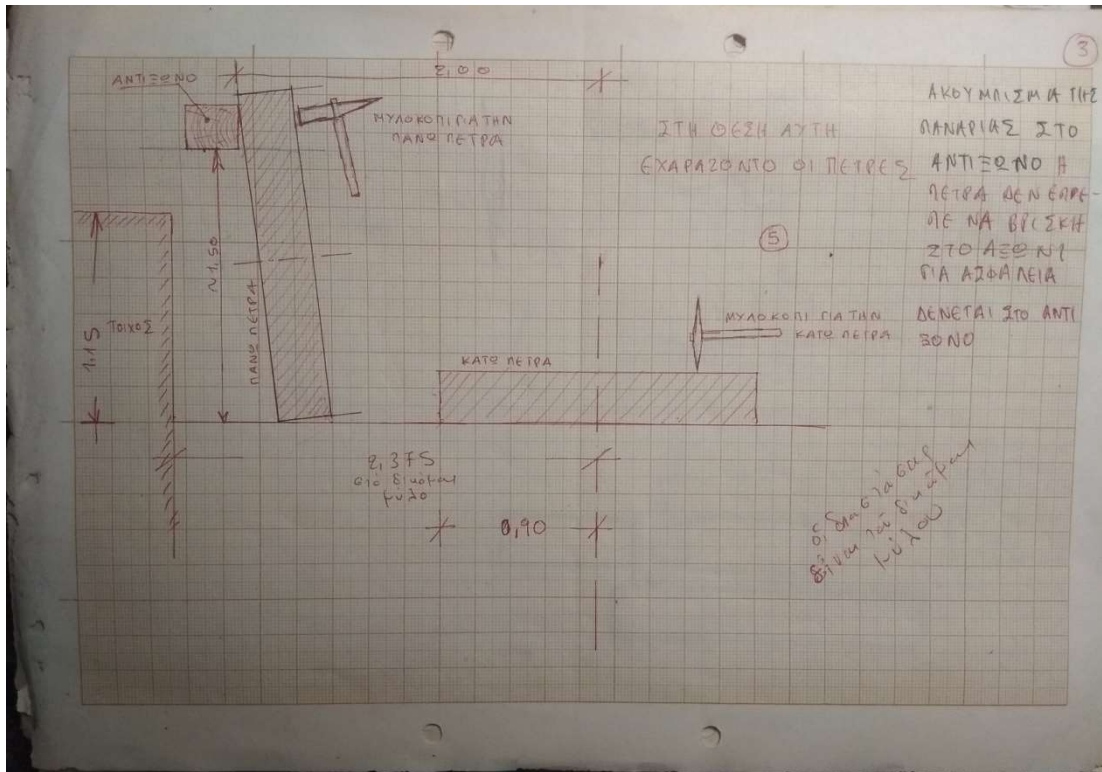 3
ΑΝΤΙΞΩΝΟ
2,00
ΜΥΛΟΚΟΠΙ ΓΙΑ ΤΗΝ
ΠΑΝΩ ΠΕΤΡΑ
ΣΤΗ ΘΕΣΗ ΑΥΤΗ
ΕΧΑΡΑΖΟΝΤΟ ΟΙ ΠΕΤΡΕΣ
ΑΚΟΥΜΠΙΣΜΑ ΤΗΣ
ΠΑΝΑΡΙΑΣ ΣΤΟ
ΑΝΤΙΞΩΝΟ Η
ΠΕΤΡΑ ΔΕΝ ΕΠΡΕ-
ΠΕ ΝΑ ΒΡΙΣΚΗ
ΣΤΟ ΑΞΩΝΙ
ΓΙΑ ΑΣΦΑΛΕΙΑ
ΔΕΝΕΤΑΙ ΣΤΟ ΑΝΤΙ
ΞΟΝΟ
5
1,15
ΤΟΙΧΟΣ
~1,50
ΠΑΝΩ ΠΕΤΡΑ
ΚΑΤΩ ΠΕΤΡΑ
ΜΥΛΟΚΟΠΙ ΓΙΑ ΤΗΝ
ΚΑΤΩ ΠΕΤΡΑ
2,375
στό δικόμου
μύλο
0,90
οἱ διαστάσεις
εἶναι τοῦ δικόμου
μύλου